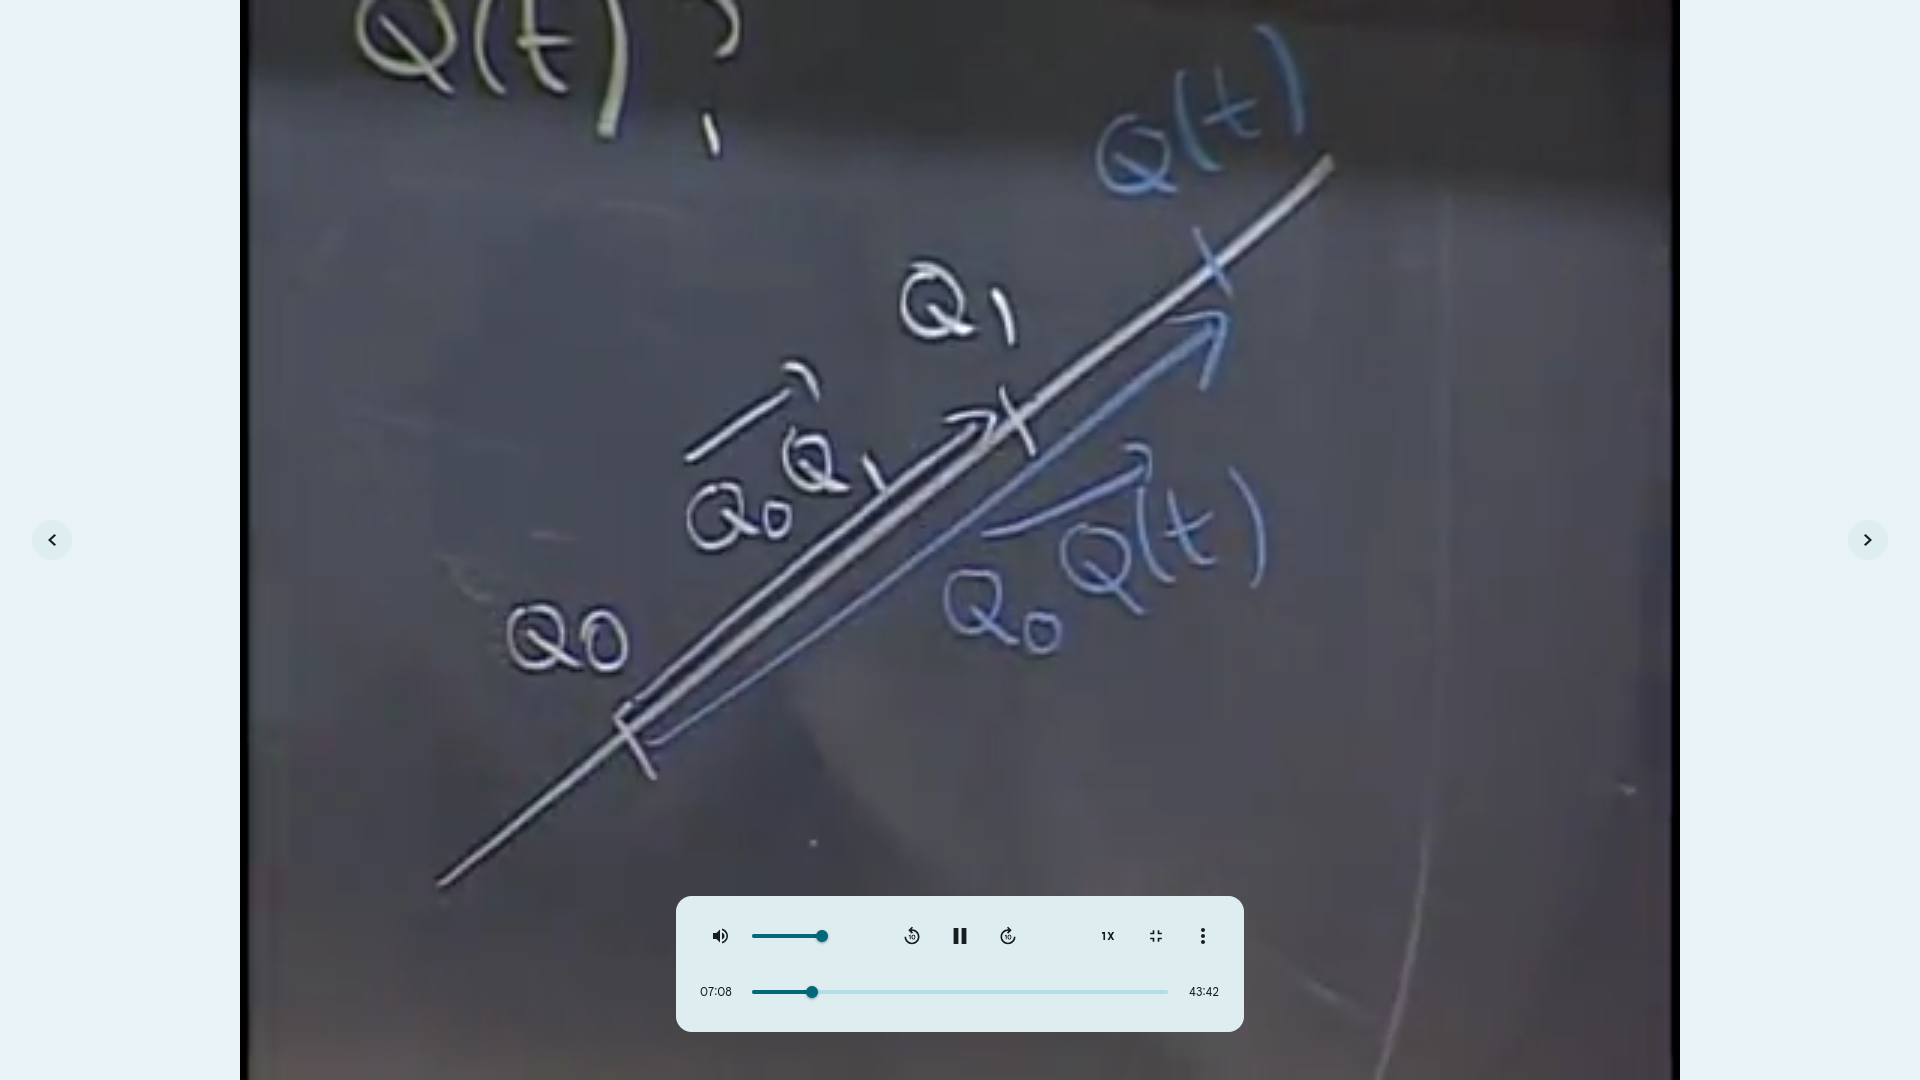 Q(t)?
Q(t)
Q1
Q0Q1
Q0Q(t)
Q0
1X
07:08
43:42